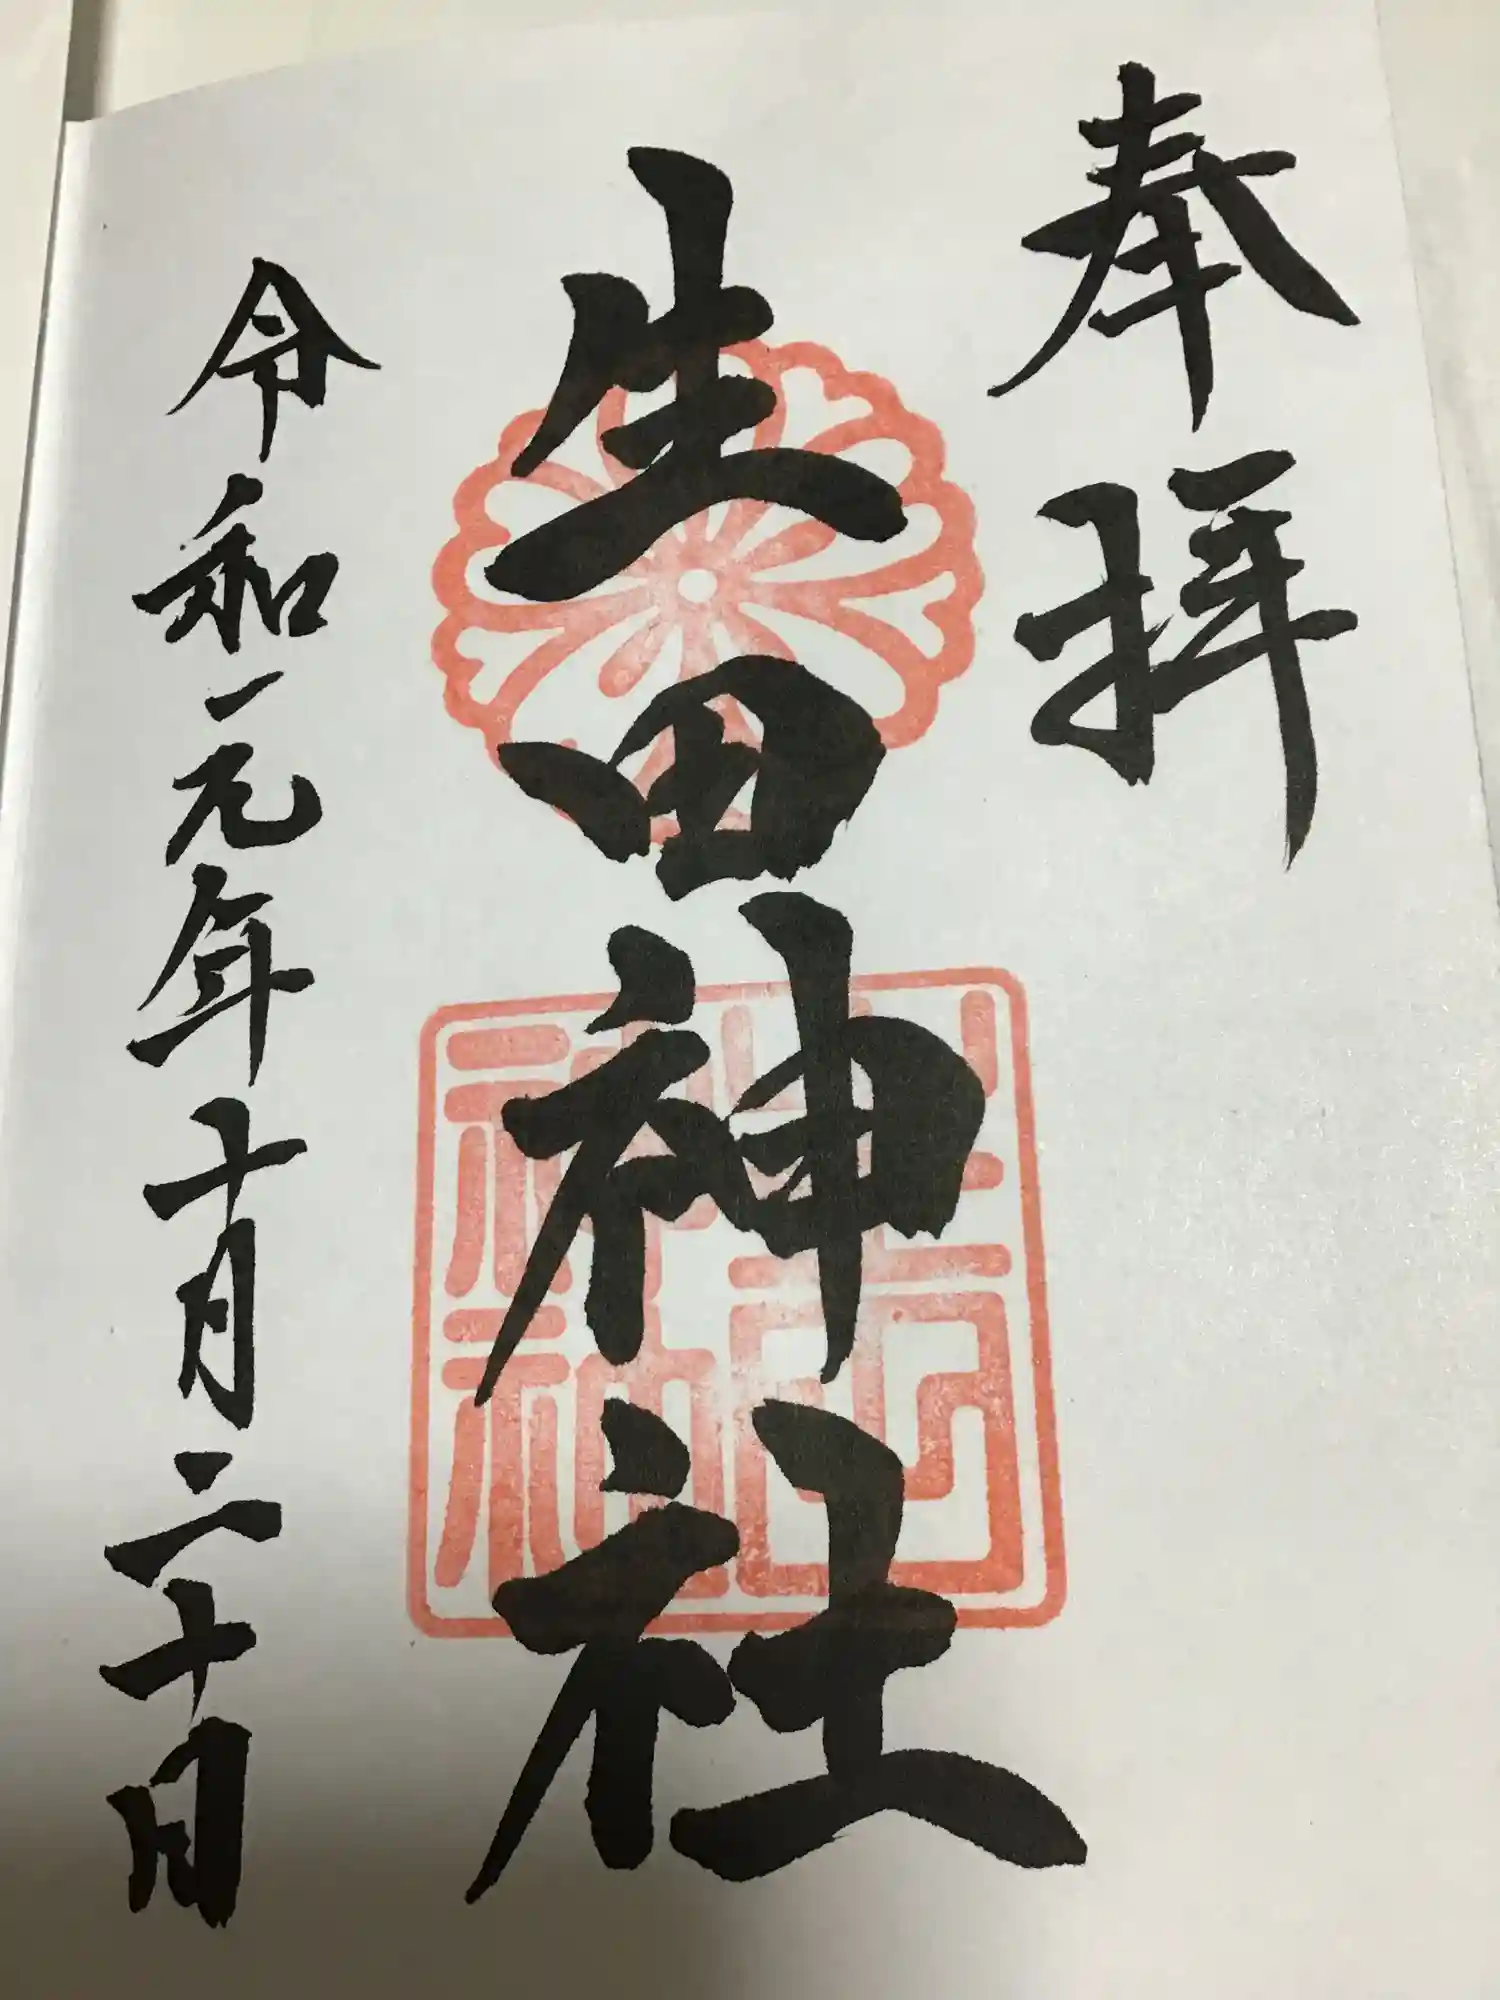 奉拝
生田神社
生田
神社
令和元年十月二十日